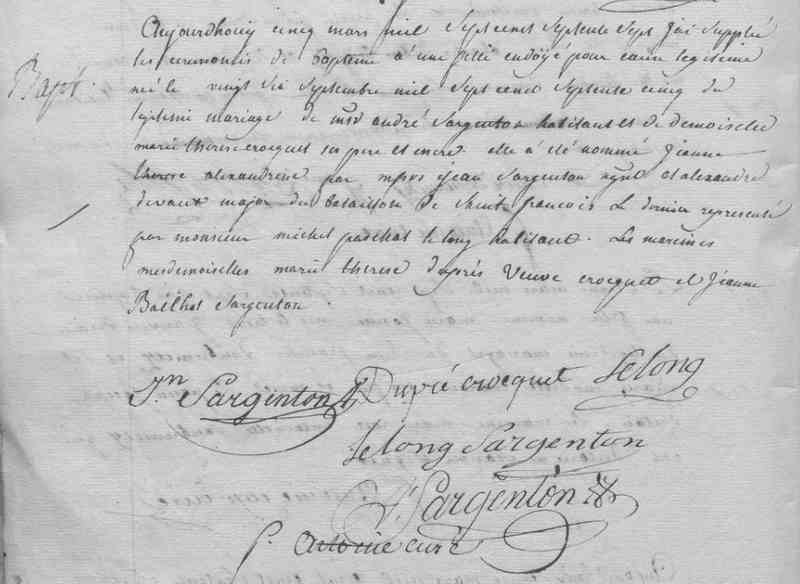 Bapt.
Aujourdhouy cinq mars mil Sept cent Septente Sept J'ai Supplée
les ceremonies de Bapteme a une fille endöyé par
née le vingt Six Septembre mil Sept cent Septente cinq du
legitime mariage de andré Sargenton habitant et de demoiselle
marie therese crocquet ses pere et mere. elle a été nommé Jeanne
therese alexandrine par mrs jean Sargenton et alexandre
devaux major du bataillon de Saint francois Le dernier representé
par monsieur michel paschal le long habitant. Les mareines
mesdemoiselles marie therese dupré Veuve crocquet et Jeanne
Balthos Sargenton.
Jn Sarginton Dupré crocquet Lelong
Lelong Sargenton
Sargenton
curé